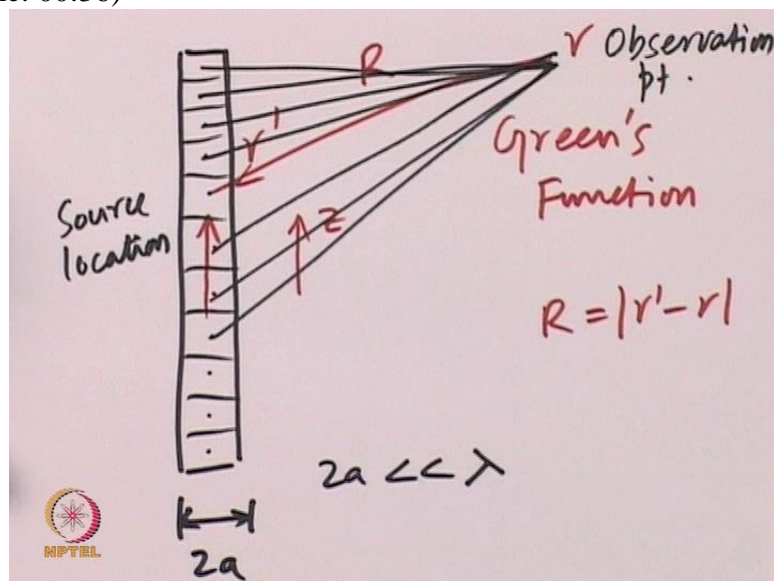 R
r Observation pt.
r'
Green's
Function
Source
location
z
R = |r' - r|
2a << λ
2a
NPTEL